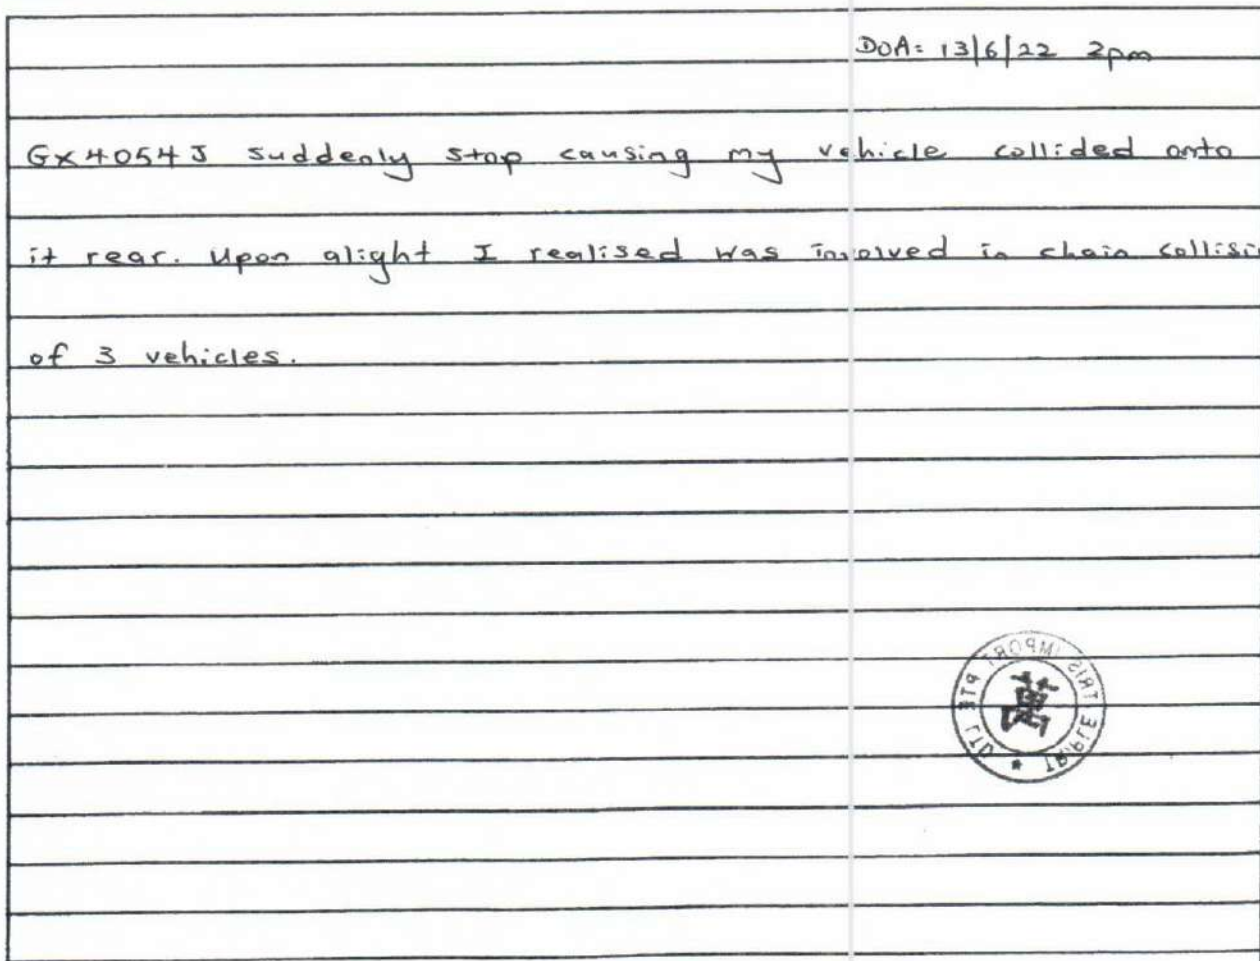 DOA: 13/6/22 2pm
GX4054J suddenly stop causing my vehicle collided onto
it rear. Upon alight I realised was involved in chain collisi
of 3 vehicles.
IMPORT PTE LTD